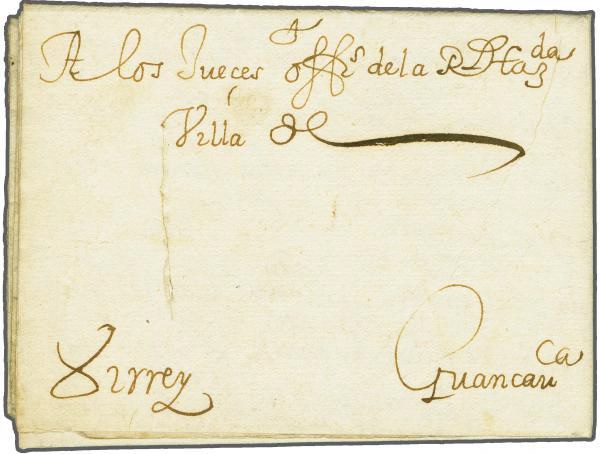 A los Jueces offs de la Rl Hazda
Villa de
Virrey
Guancauca